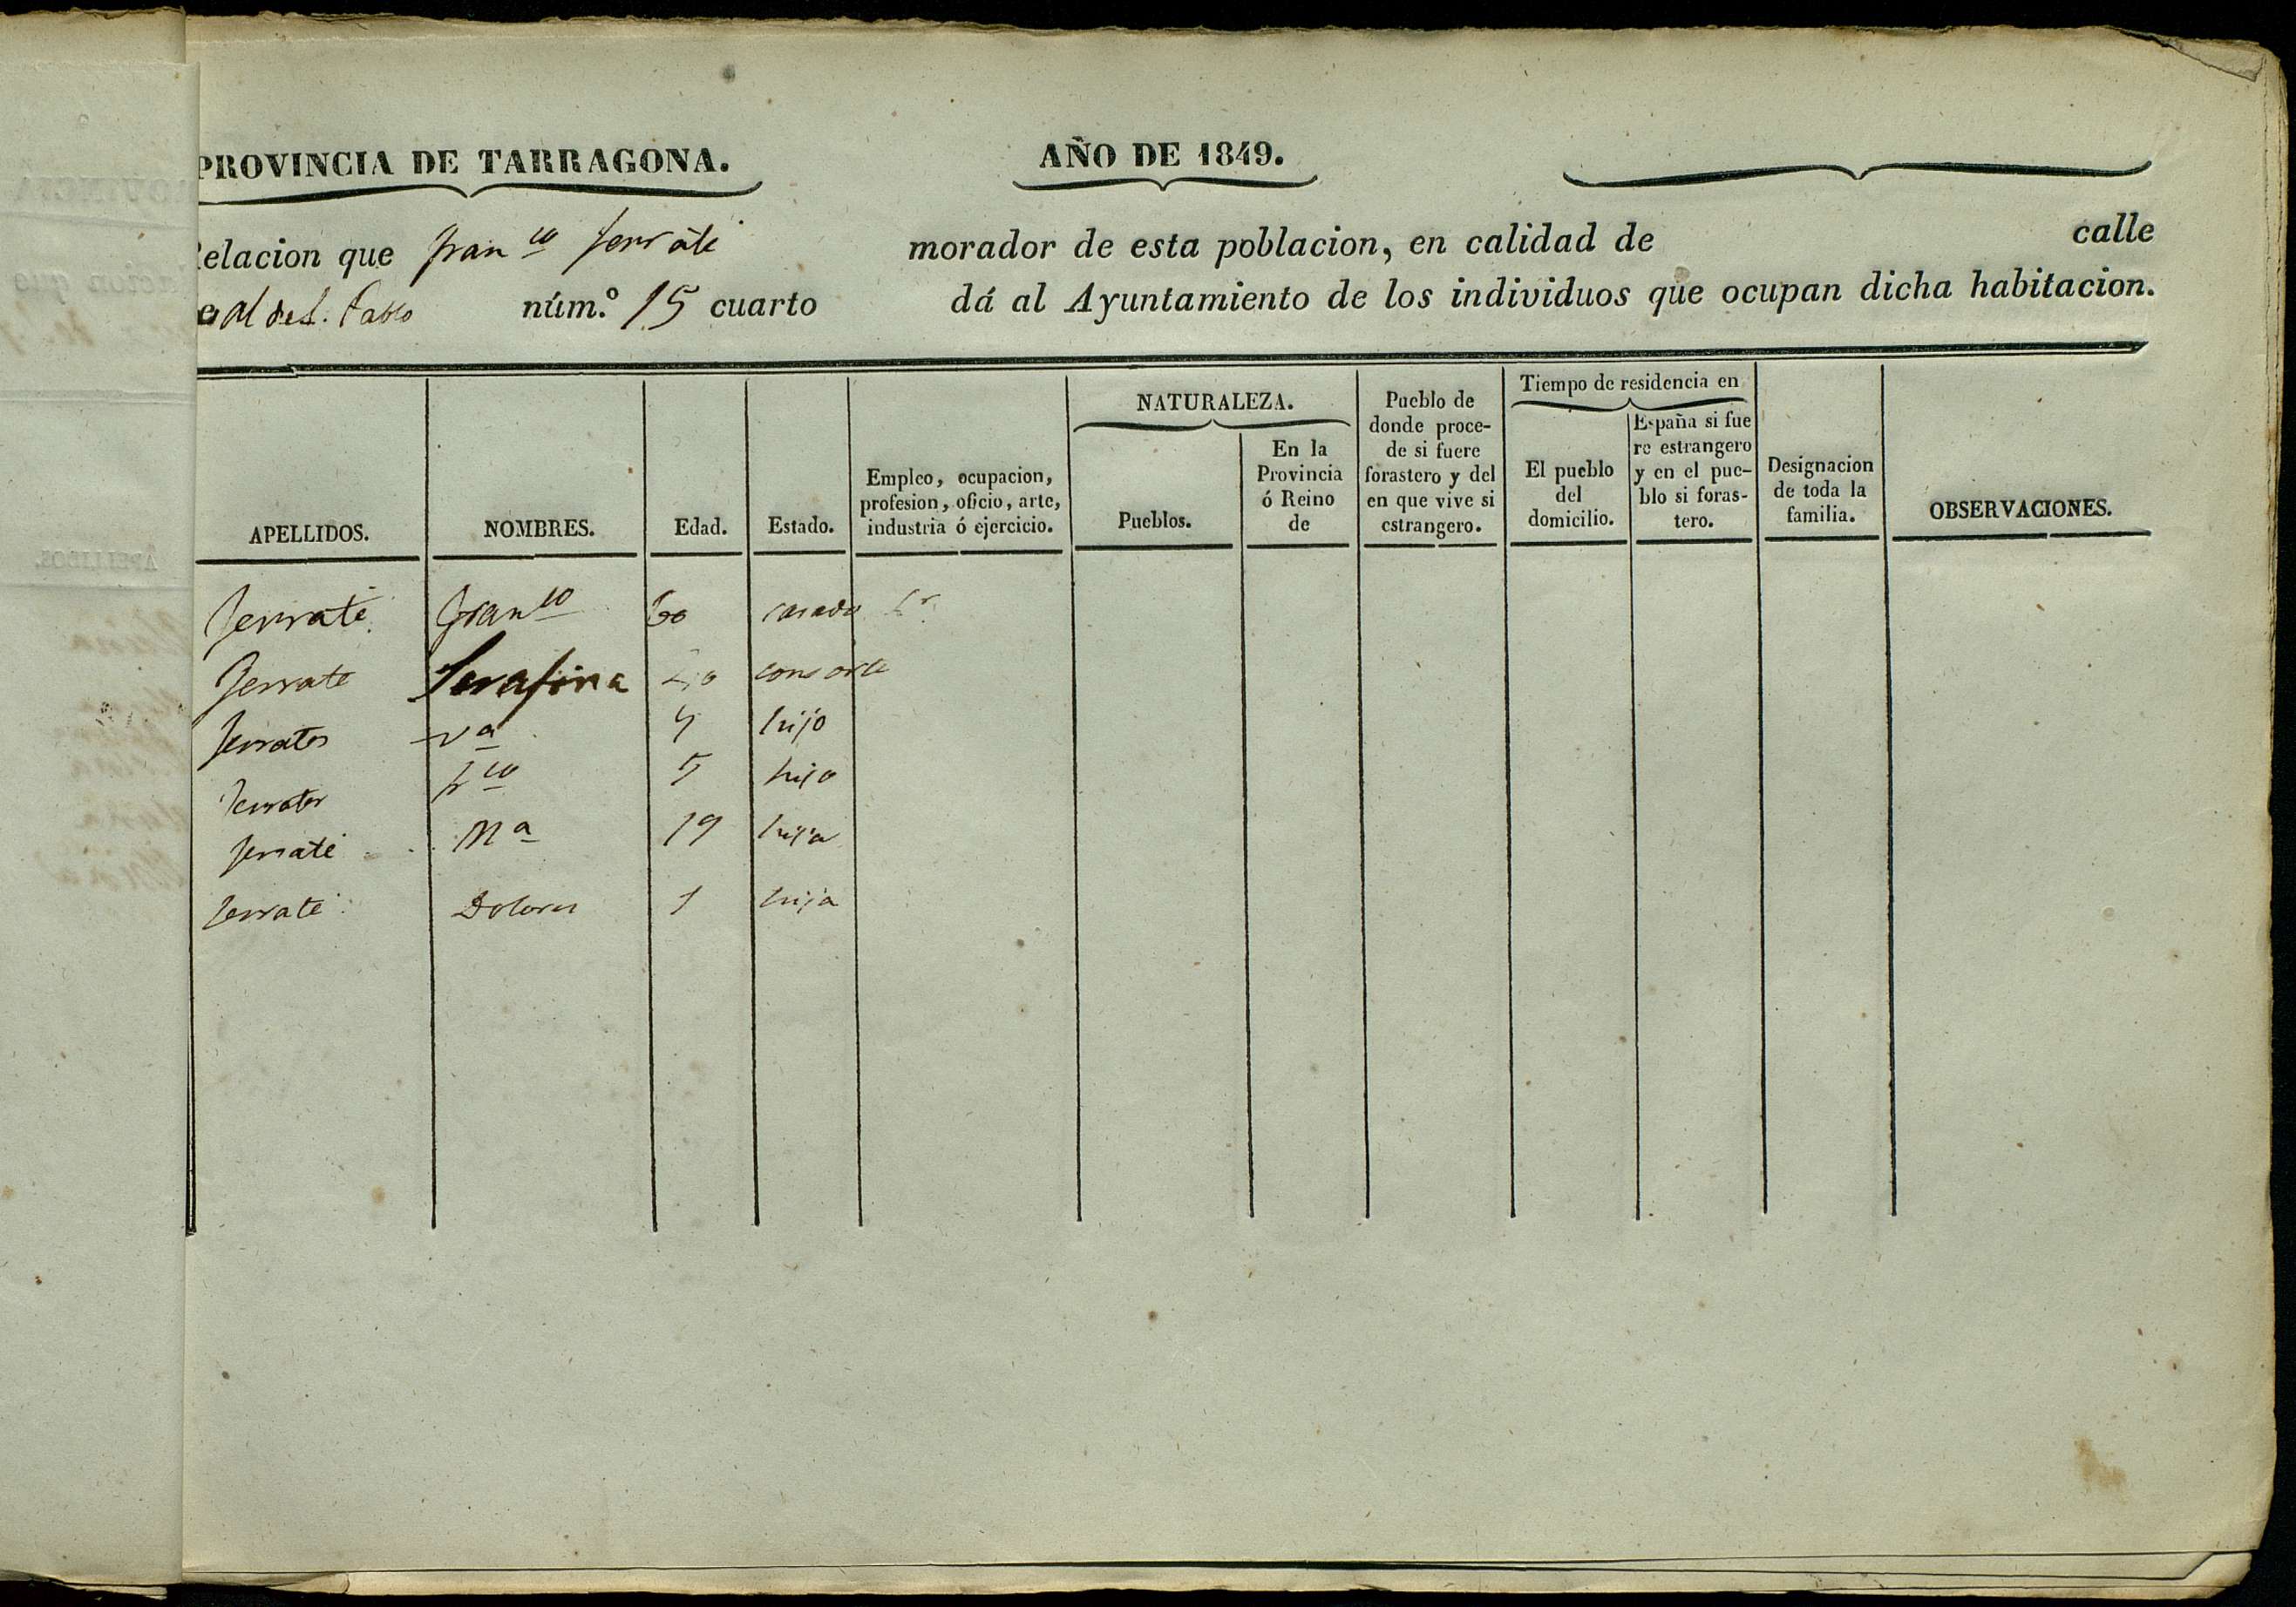 PROVINCIA DE TARRAGONA. AÑO DE 1849.
elacion que Fran co Serraté morador de esta poblacion, en calidad de calle
al de S. Pablo núm.º 15 cuarto dá al Ayuntamiento de los individuos que ocupan dicha habitacion.
APELLIDOS. NOMBRES. Edad. Estado. Empleo, ocupacion, profesion, oficio, arte, industria ó ejercicio. NATURALEZA. Pueblos. En la Provincia ó Reino de Pueblo de donde procede si fuere forastero y del en que vive si estrangero. Tiempo de residencia en El pueblo del domicilio. España si fuere estrangero y en el pueblo si forastero. Designacion de toda la familia. OBSERVACIONES.
Serraté Fran co 60 casado
Serrate Serafina consorte
Serrater hijo
Serrater F co 5 hijo
Serraté M a 19 hija
Serrate Dolores 1 hija